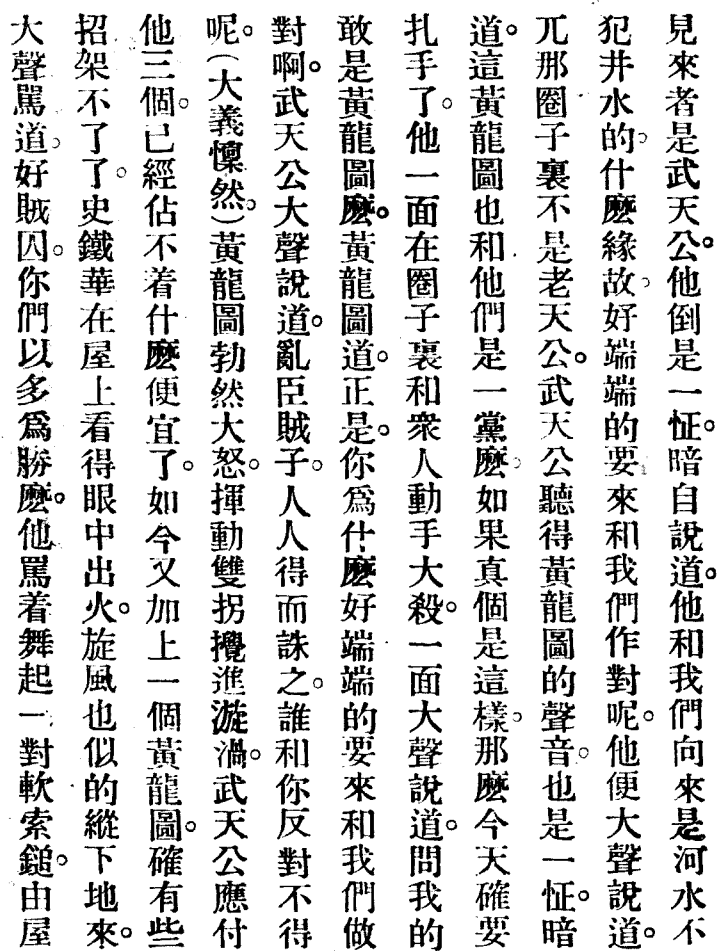 見來者是武天公。他倒是一怔。暗自說道。他和我們向來是河水不
犯井水的。什麽緣故。好端端的要來和我們作對呢。他便大聲說道。
兀那圈子裏不是老天公。武天公聽得黃龍圖的聲音。也是一怔。暗
道。這黃龍圖也和他們是一黨麽。如果真個是這樣。那麽今天確要
扎手了。他一面在圈子裏和衆人動手大殺。一面大聲說道。問我的
敢是黃龍圖麽。黃龍圖道。正是。你爲什麽好端端的要來和我們做
對啊。武天公大聲說道。亂臣賊子。人人得而誅之。誰和你反對不得
呢。(大義懍然。)黃龍圖勃然大怒。揮動雙拐攪進漩渦。武天公應付
他三個。已經佔不着什麽便宜了。如今又加上一個黃龍圖。確有些
招架不了了。史鐵華在屋上看得眼中出火。旋風也似的縱下地來。
大聲罵道。好賊囚。你們以多爲勝麽。他罵着舞起一對軟索鎚。由屋